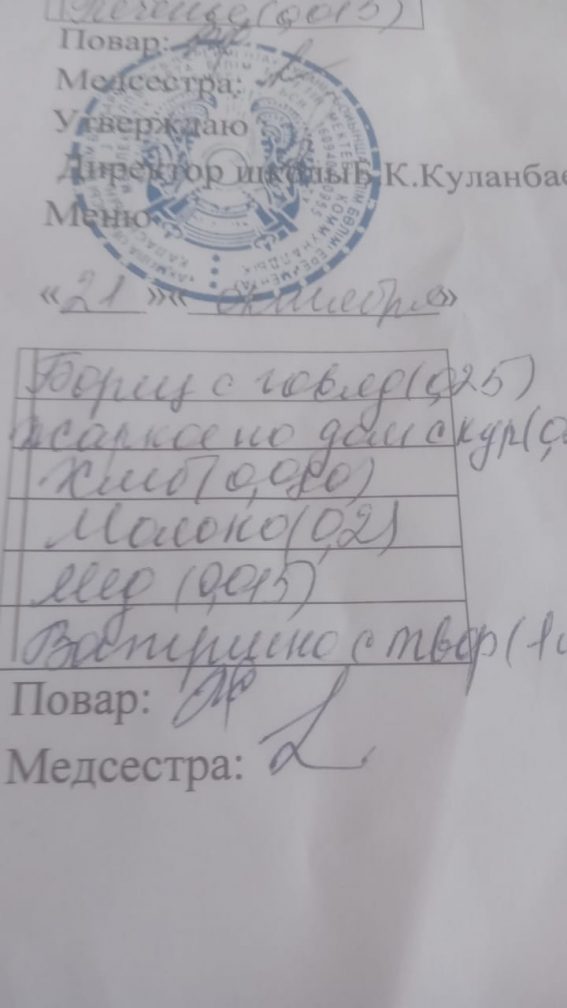 Печенье (0,015)
Повар:
Медсестра:
Утверждаю
Директор школыБ.К.Куланбае
Меню
«21»«октября»
Борщ с говяд(0,25)
жаркое по дом с кур(0,
Хлеб(0,080)
Молоко(0,2)
Мед (0,015)
Ватрушка с твор(1
Повар:
Медсестра: